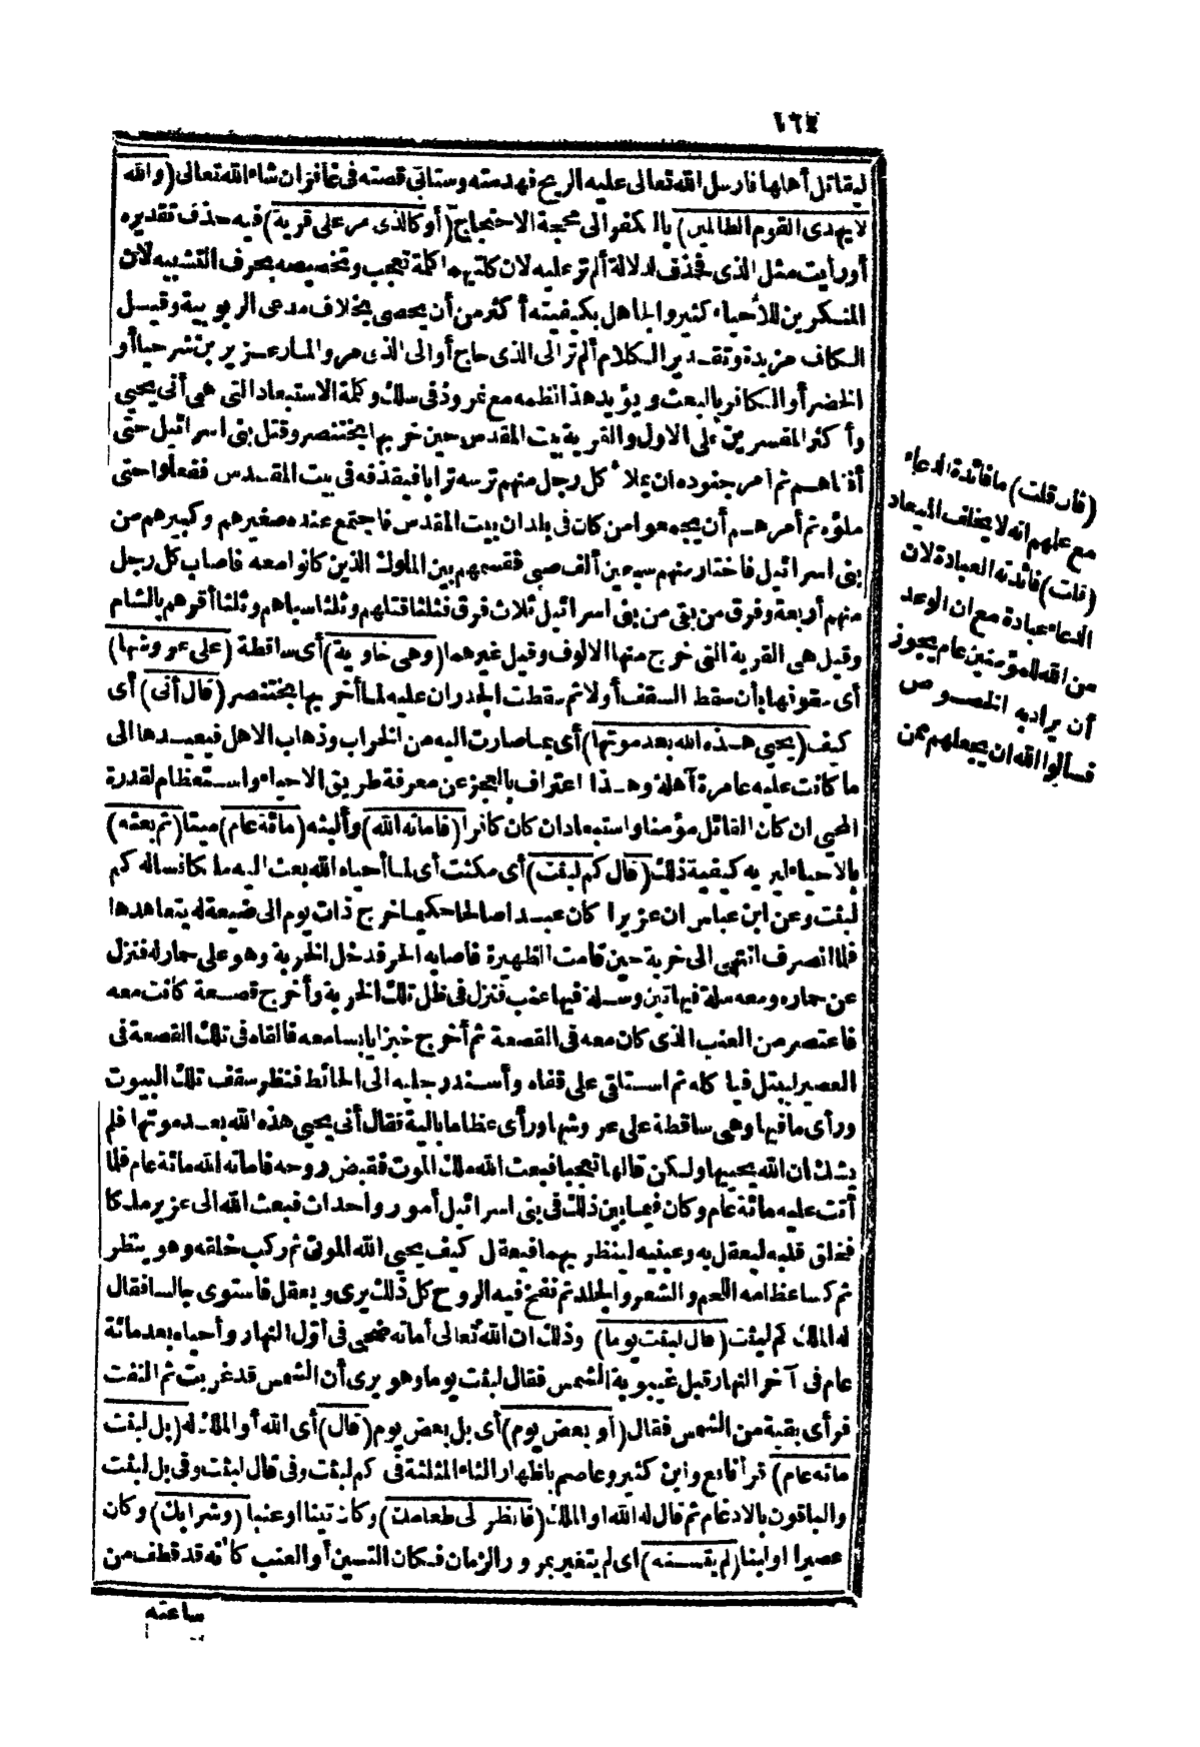 ١٦٤
ليقاتل أهلها فارسل الله تعالى عليه الريح فهدمته وستأتى قصته فى غافر ان شاء الله تعالى (والله
لا يهدى القوم الظالمين) بالكفر الى محجة الاحتجاج (أو كالذى مر على قرية) فيه حذف تقديره
أو رأيت مثل الذى فحذف لدلالة ألم تر عليه لان كلتيهما كلمة تعجب وتخصيصه بحرف التشبيه لان
المنكرين للأحياء كثير والجاهل بكيفيته أكثر من أن يحصى بخلاف مدعى الربوبية وقيل
الكاف مزيدة وتقدير الكلام ألم تر الى الذى حاج أو الى الذى مر والمار عزير بن شرحيا أو
الخضر أو الكافر بالبعث ويؤيد هذا نظمه مع نمروذ فى سلك وكلمة الاستبعاد التى هى أنى يحيى
وأكثر المفسرين على الاول والقرية بيت المقدس حين خربها بختنصر وقتل بنى اسرائيل حتى
أفناهم ثم أمر جنوده ان يملأ كل رجل منهم ترسه ترابا فيقذفه فى بيت المقدس ففعلوا حتى
ملؤه ثم أمرهم أن يجمعوا من كان فى بلدان بيت المقدس فاجتمع عنده صغيرهم وكبيرهم من
بنى اسرائيل فاختار منهم سبعين ألف صبى فقسمهم بين الملوك الذين كانوا معه فاصاب كل رجل
منهم أربعة وفرق من بقى من بنى اسرائيل ثلاث فرق فثلثا قتلهم وثلثا سباهم وثلثا أقرهم بالشام
وقيل هى القرية التى خرج منها الالوف وقيل غيرهما (وهى خاوية) أى ساقطة (على عروشها)
أى سقوفها بأن سقط السقف أولا ثم سقطت الجدران عليه لما أخربها بختنصر (قال أنى) أى
كيف (يحيى هذه الله بعد موتها) أى بما صارت اليه من الخراب وذهاب الاهل فيعيدها الى
ما كانت عليه عامرة آهلة وهذا اعتراف بالعجز عن معرفة طريق الاحياء واستعظام لقدرة
المحيى ان كان القائل مؤمنا واستبعاد ان كان كافرا (فاماته الله) وألبثه (مائة عام) ميتا (ثم بعثه)
بالاحياء ليريه كيفية ذلك (قال كم لبثت) أى مكثت أى لما أحياه الله بعث اليه ملكا فسأله كم
لبثت وعن ابن عباس ان عزيرا كان عبدا صالحا حكيما خرج ذات يوم الى ضيعة له يتعاهدها
فلما انصرف انتهى الى خربة حين قامت الظهيرة فاصابه الحر فدخل الخربة وهو على حمار له فنزل
عن حماره ومعه سلة فيها تين وسلة فيها عنب فنزل فى ظل تلك الخربة وأخرج قصعة كانت معه
فاعتصر من العنب الذى كان معه فى القصعة ثم أخرج خبزا يابسا معه فالقاه فى تلك القصعة فى
العصير ليبتل فيأكله ثم استلقى على قفاه وأسند رجليه الى الحائط فنظر سقف تلك البيوت
ورأى ما فيها وهى ساقطة على عروشها ورأى عظاما بالية فقال أنى يحيى هذه الله بعد موتها فلم
يشك ان الله يحييها ولكن قالها تعجبا فبعث الله ملك الموت فقبض روحه فاماته الله مائة عام فلما
أتت عليه مائة عام وكان فيما بين ذلك فى بنى اسرائيل أمور واحداث فبعث الله الى عزير ملكا
فخلق قلبه ليعقل به وعينيه لينظر بهما فيعقل كيف يحيى الله الموتى ثم ركب خلقه وهو ينظر
ثم كسا عظامه اللحم والشعر والجلد ثم نفخ فيه الروح كل ذلك يرى ويعقل فاستوى جالسا فقال
له الملك كم لبثت (قال لبثت يوما) وذلك ان الله تعالى أماته ضحى فى أول النهار وأحياه بعد مائة
عام فى آخر النهار قبل غيبوبة الشمس فقال لبثت يوما وهو يرى أن الشمس قد غربت ثم التفت
فرأى بقية من الشمس فقال (أو بعض يوم) أى بل بعض يوم (قال) أى الله أو الملك له (بل لبثت
مائة عام) قرأ نافع وابن كثير وعاصم باظهار الثاء المثلثة فى كم لبثت وفى قال لبثت وفى بل لبثت
والباقون بالادغام ثم قال له الله او الملك (فانظر الى طعامك) وكان تينا او عنبا (وشرابك) وكان
عصيرا او لبنا (لم يتسنه) اى لم يتغير بمرور الزمان فكان التين أو العنب كأنه قد قطف من
ساعته
(فان قلت) ما فائدة الدعاء
مع علمهم انه لا يخلف الميعاد
(قلت) فائدته العبادة لان
الدعاء عبادة مع ان الوعد
من الله للمؤمنين عام يجوز
أن يراد به الخصوص
فسألوا الله ان يجعلهم ممن